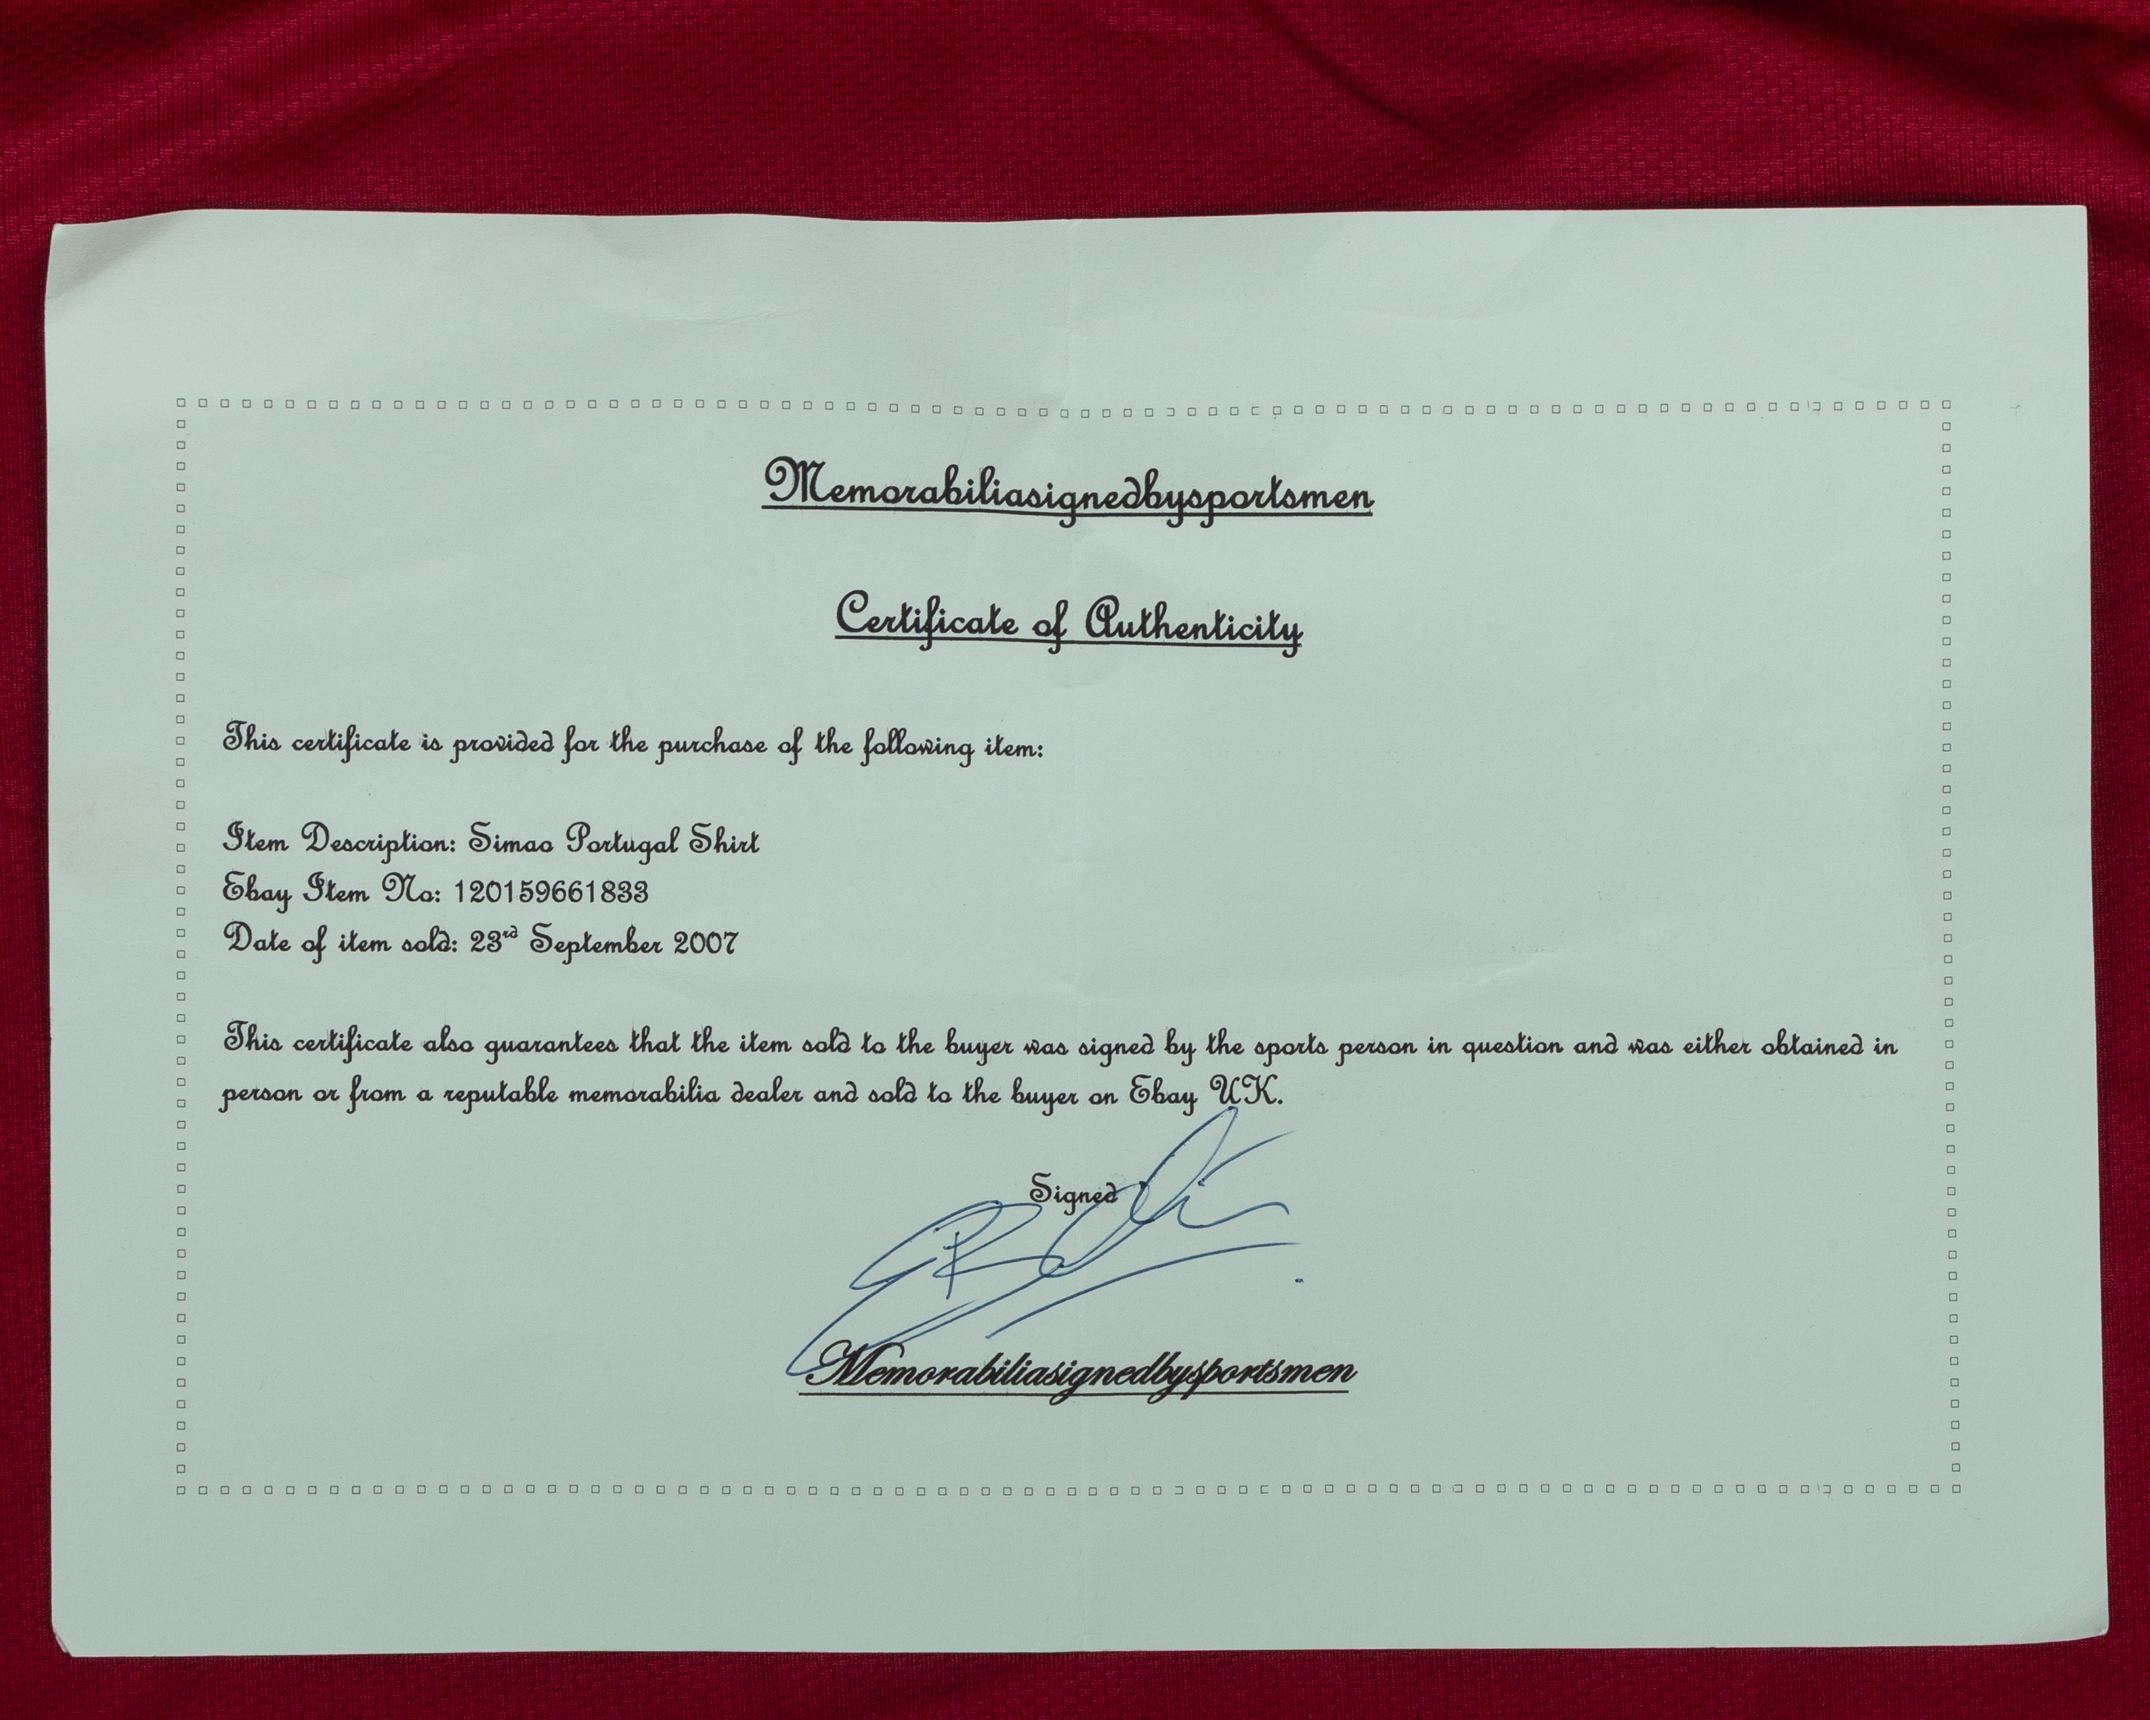 Memorabiliasignedbysportsmen
Certificate of Authenticity
This certificate is provided for the purchase of the following item:
Item Description: Simao Portugal Shirt
Ebay Item No: 120159661833
Date of item sold: 23rd September 2007
This certificate also guarantees that the item sold to the buyer was signed by the sports person in question and was either obtained in
person or from a reputable memorabilia dealer and sold to the buyer on Ebay UK.
Signed
Memorabiliasignedbysportsmen